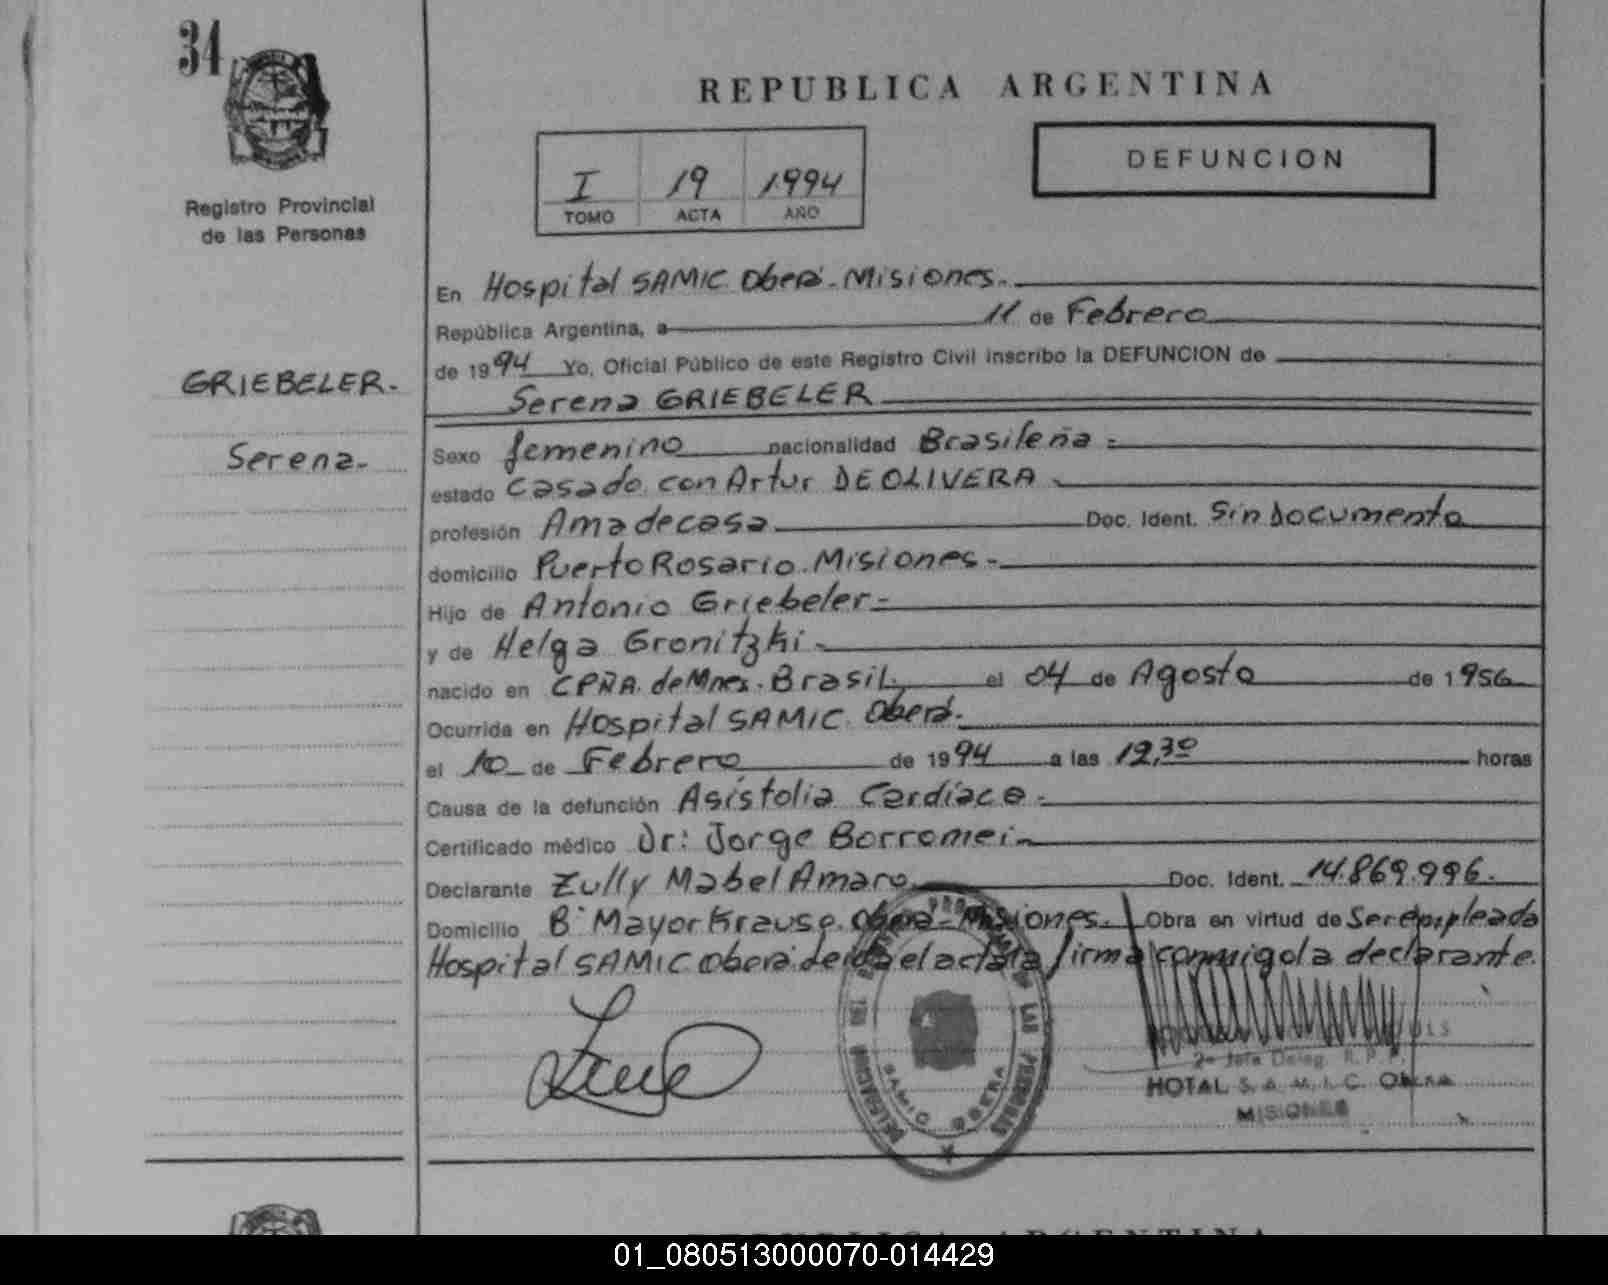 34
Registro Provincial
de las Personas
GRIEBELER.
Serena.
REPUBLICA ARGENTINA
I 19 1994
TOMO ACTA AÑO
DEFUNCION
En Hospital SAMIC Oberá. Misiones.
República Argentina, a 11 de Febrero
de 1994 Yo, Oficial Público de este Registro Civil inscribo la DEFUNCION de
Serena GRIEBELER
Sexo femenino nacionalidad Brasileña
estado casado con Artur DE OLIVERA
profesión Ama de casa Doc. Ident. Sin Documento
domicilio Puerto Rosario. Misiones
Hijo de Antonio Griebeler
y de Helga Gronitzki
nacido en CPÑA. de Mnes. Brasil. el 04 de Agosto de 1956
Ocurrida en Hospital SAMIC Oberá.
el 10 de Febrero de 1994 a las 12,30 horas
Causa de la defunción Asistolia Cardíaca
Certificado médico Dr: Jorge Borromei
Declarante Zully Mabel Amaro Doc. Ident. 14.869.996.
Domicilio B° Mayor Krause. Oberá - Misiones. Obra en virtud de Ser empleada
Hospital SAMIC Oberá. leída el acta la firma conmigo la declarante.
DELEGACION
LAS PERSONAS
SAMIC OBERA
2º Jefe Deleg. R. P. P.
HOTAL S. A. M. I. C. OBERA
MISIONES
REPUBLICA ARGENTINA
01_080513000070-014429